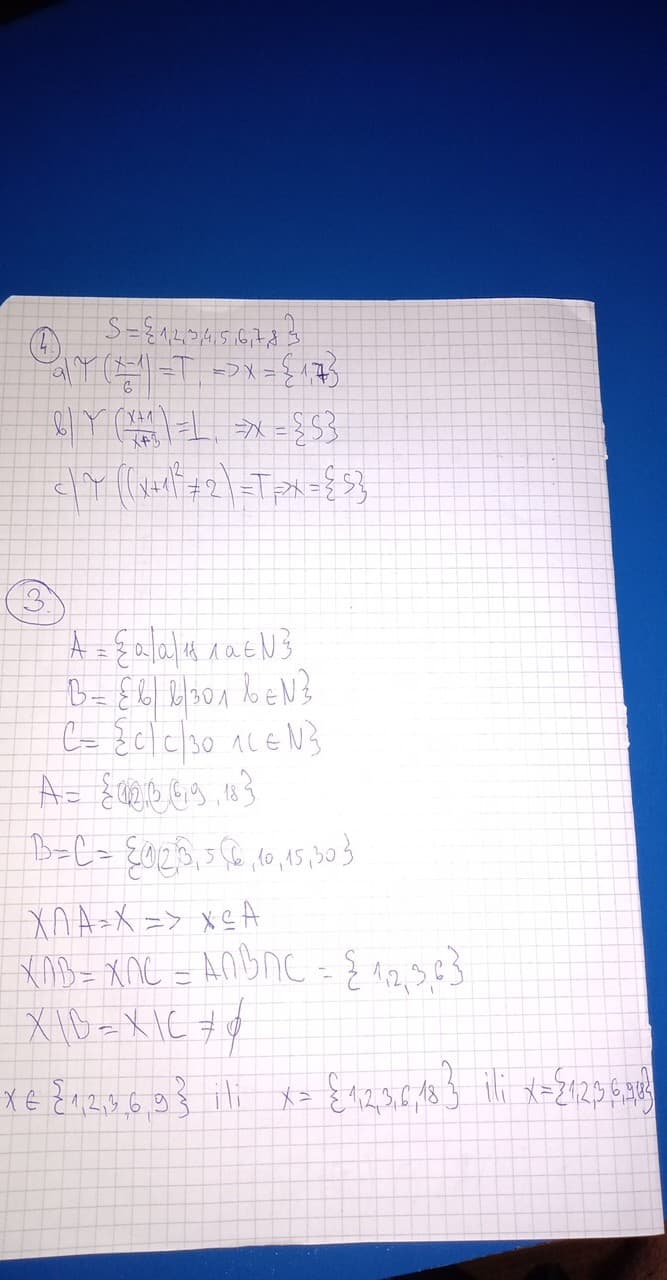 4. S={1,2,3,4,5,6,7,8}
a) τ(x-1/6)=T, =>x={1,7}
b) τ(x+1/x+3)=⊥, =>x={S}
c) τ((x+1)²≠2)=T=>x={S}
3.
A={a|a|18 ∧ a∈N}
B={b|b|30 ∧ b∈N}
C={c|c|30 ∧ c∈N}
A={1,2,3,6,9,18}
B=C={1,2,3,5,6,10,15,30}
X∩A=X => x⊆A
X∩B=X∩C=A∩B∩C={1,2,3,6}
X\B=X\C≠∅
x∈{1,2,3,6,9} ili x={1,2,3,6,18} ili x={1,2,3,6,9,18}